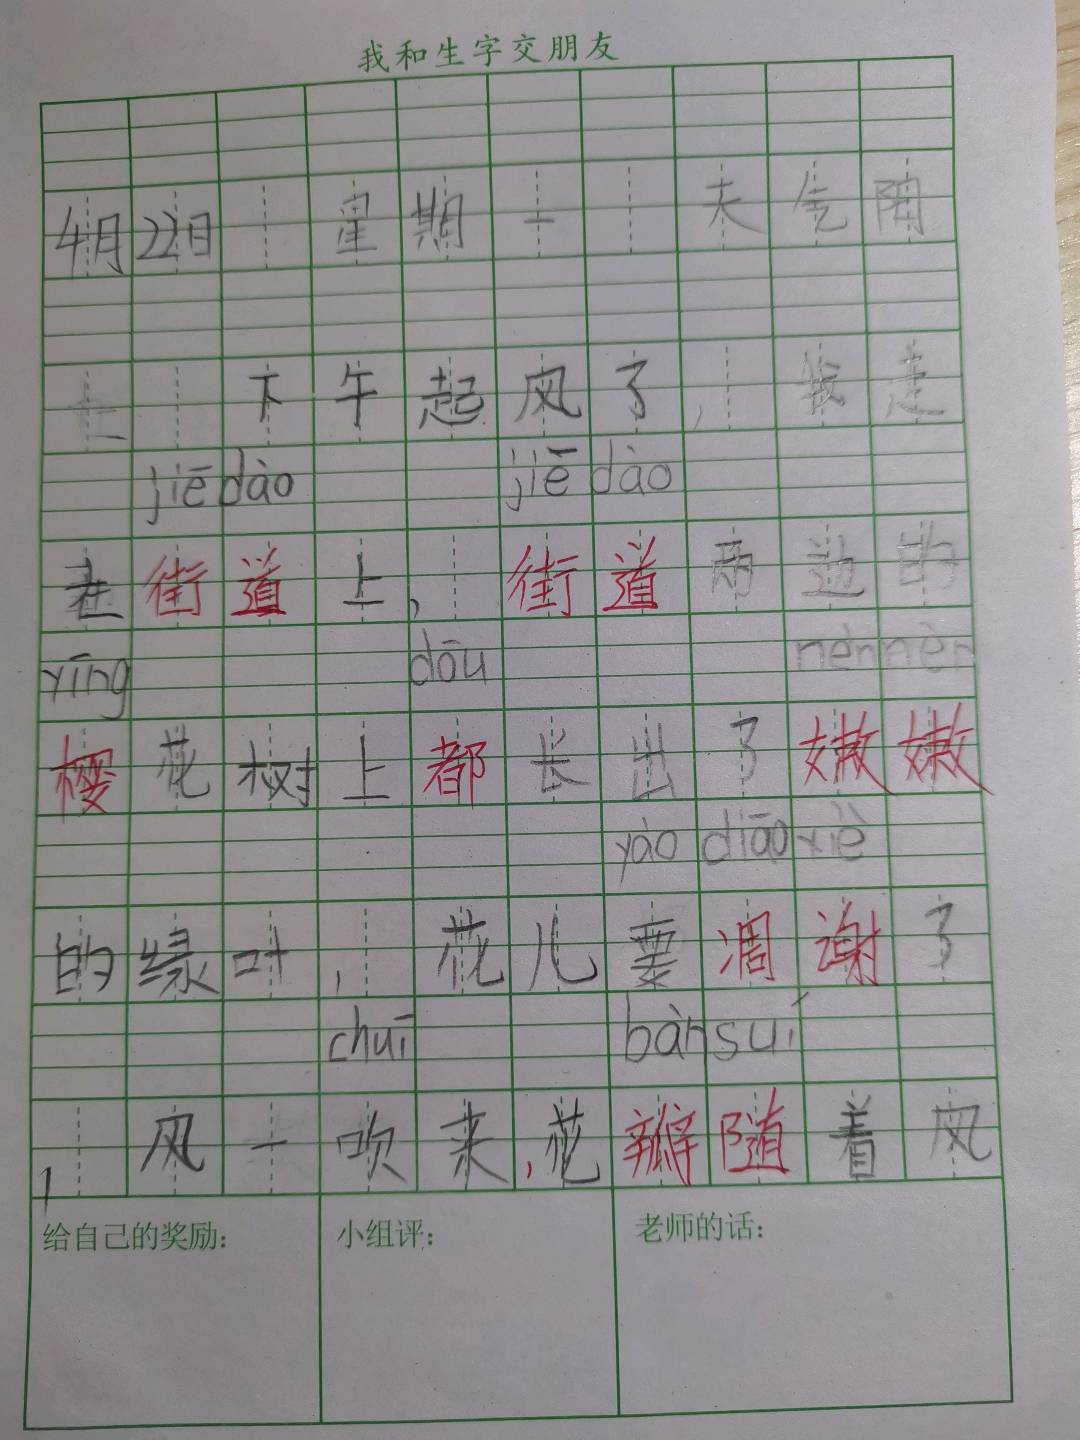 我和生字交朋友
4月22日 星期一 天气阴
下午起风了，我走
jiē dào jiē dào
在街道上，街道两边的
yīng dōu nèn nèn
樱花树上都长出了嫩嫩
yào diāo xiè
的绿叶，花儿要凋谢了
chuī bàn suí
，风一吹来，花瓣随着风
给自己的奖励： 小组评： 老师的话：